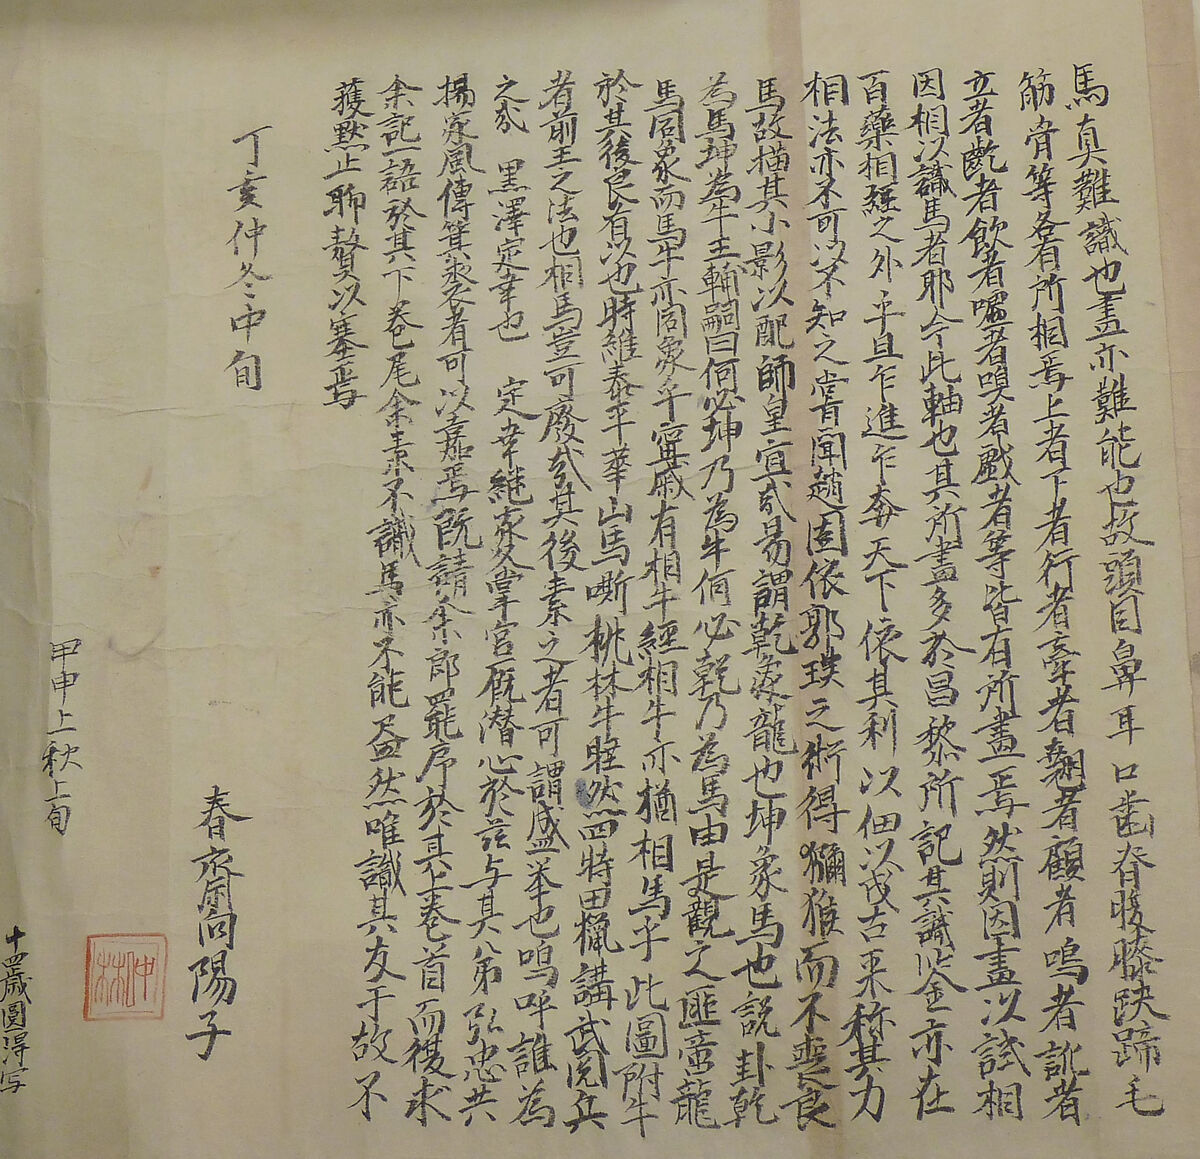 馬真難識也畫亦難能也故頭目鼻耳口齒脊腹膝跌蹄毛
筋骨等各有所相焉上者下者行者牽者翹者顧者鳴者訛者
立者齕者飲者嘘者嗅者戯者等皆有所畫焉然則因畫以試相
因相以識馬者耶今此軸也其所畫多於昌黎所記其識鉴亦在
百藥相經之外乎且乍進乍奔天下依其利以佃以伐古来称其力
相法亦不可以不知之嘗聞趙固依郭璞之術得獼猴而不喪良
馬故描其小影以配師皇宜哉易謂乾象龍也坤象馬也説卦乾
為馬坤為牛王輔嗣曰何必坤乃為牛何必乾乃為馬由是觀之匪啻龍
馬同象而馬牛亦同象乎甯戚有相牛經相牛亦猶相馬乎此圖附牛
於其後良有以也時維泰平華山馬嘶桃林牛眠然四特田獵講武閲兵
者前王之法也相馬豈可廢哉其後素之者可謂盛举也嗚呼誰為
之哉 黒澤定幸也 定幸継家父掌官厩潜心於茲与其弟弘忠共
揚家風傳箕裘者可以嘉焉既請余郎罷序於其上巻首而復求
余記一語於其下巻尾余素不識馬亦不能画然唯識其友于故不
獲默止聊贅以塞焉
丁亥仲冬中旬
春齋向陽子
仲林
甲申上秋上旬
十四歳圓得写